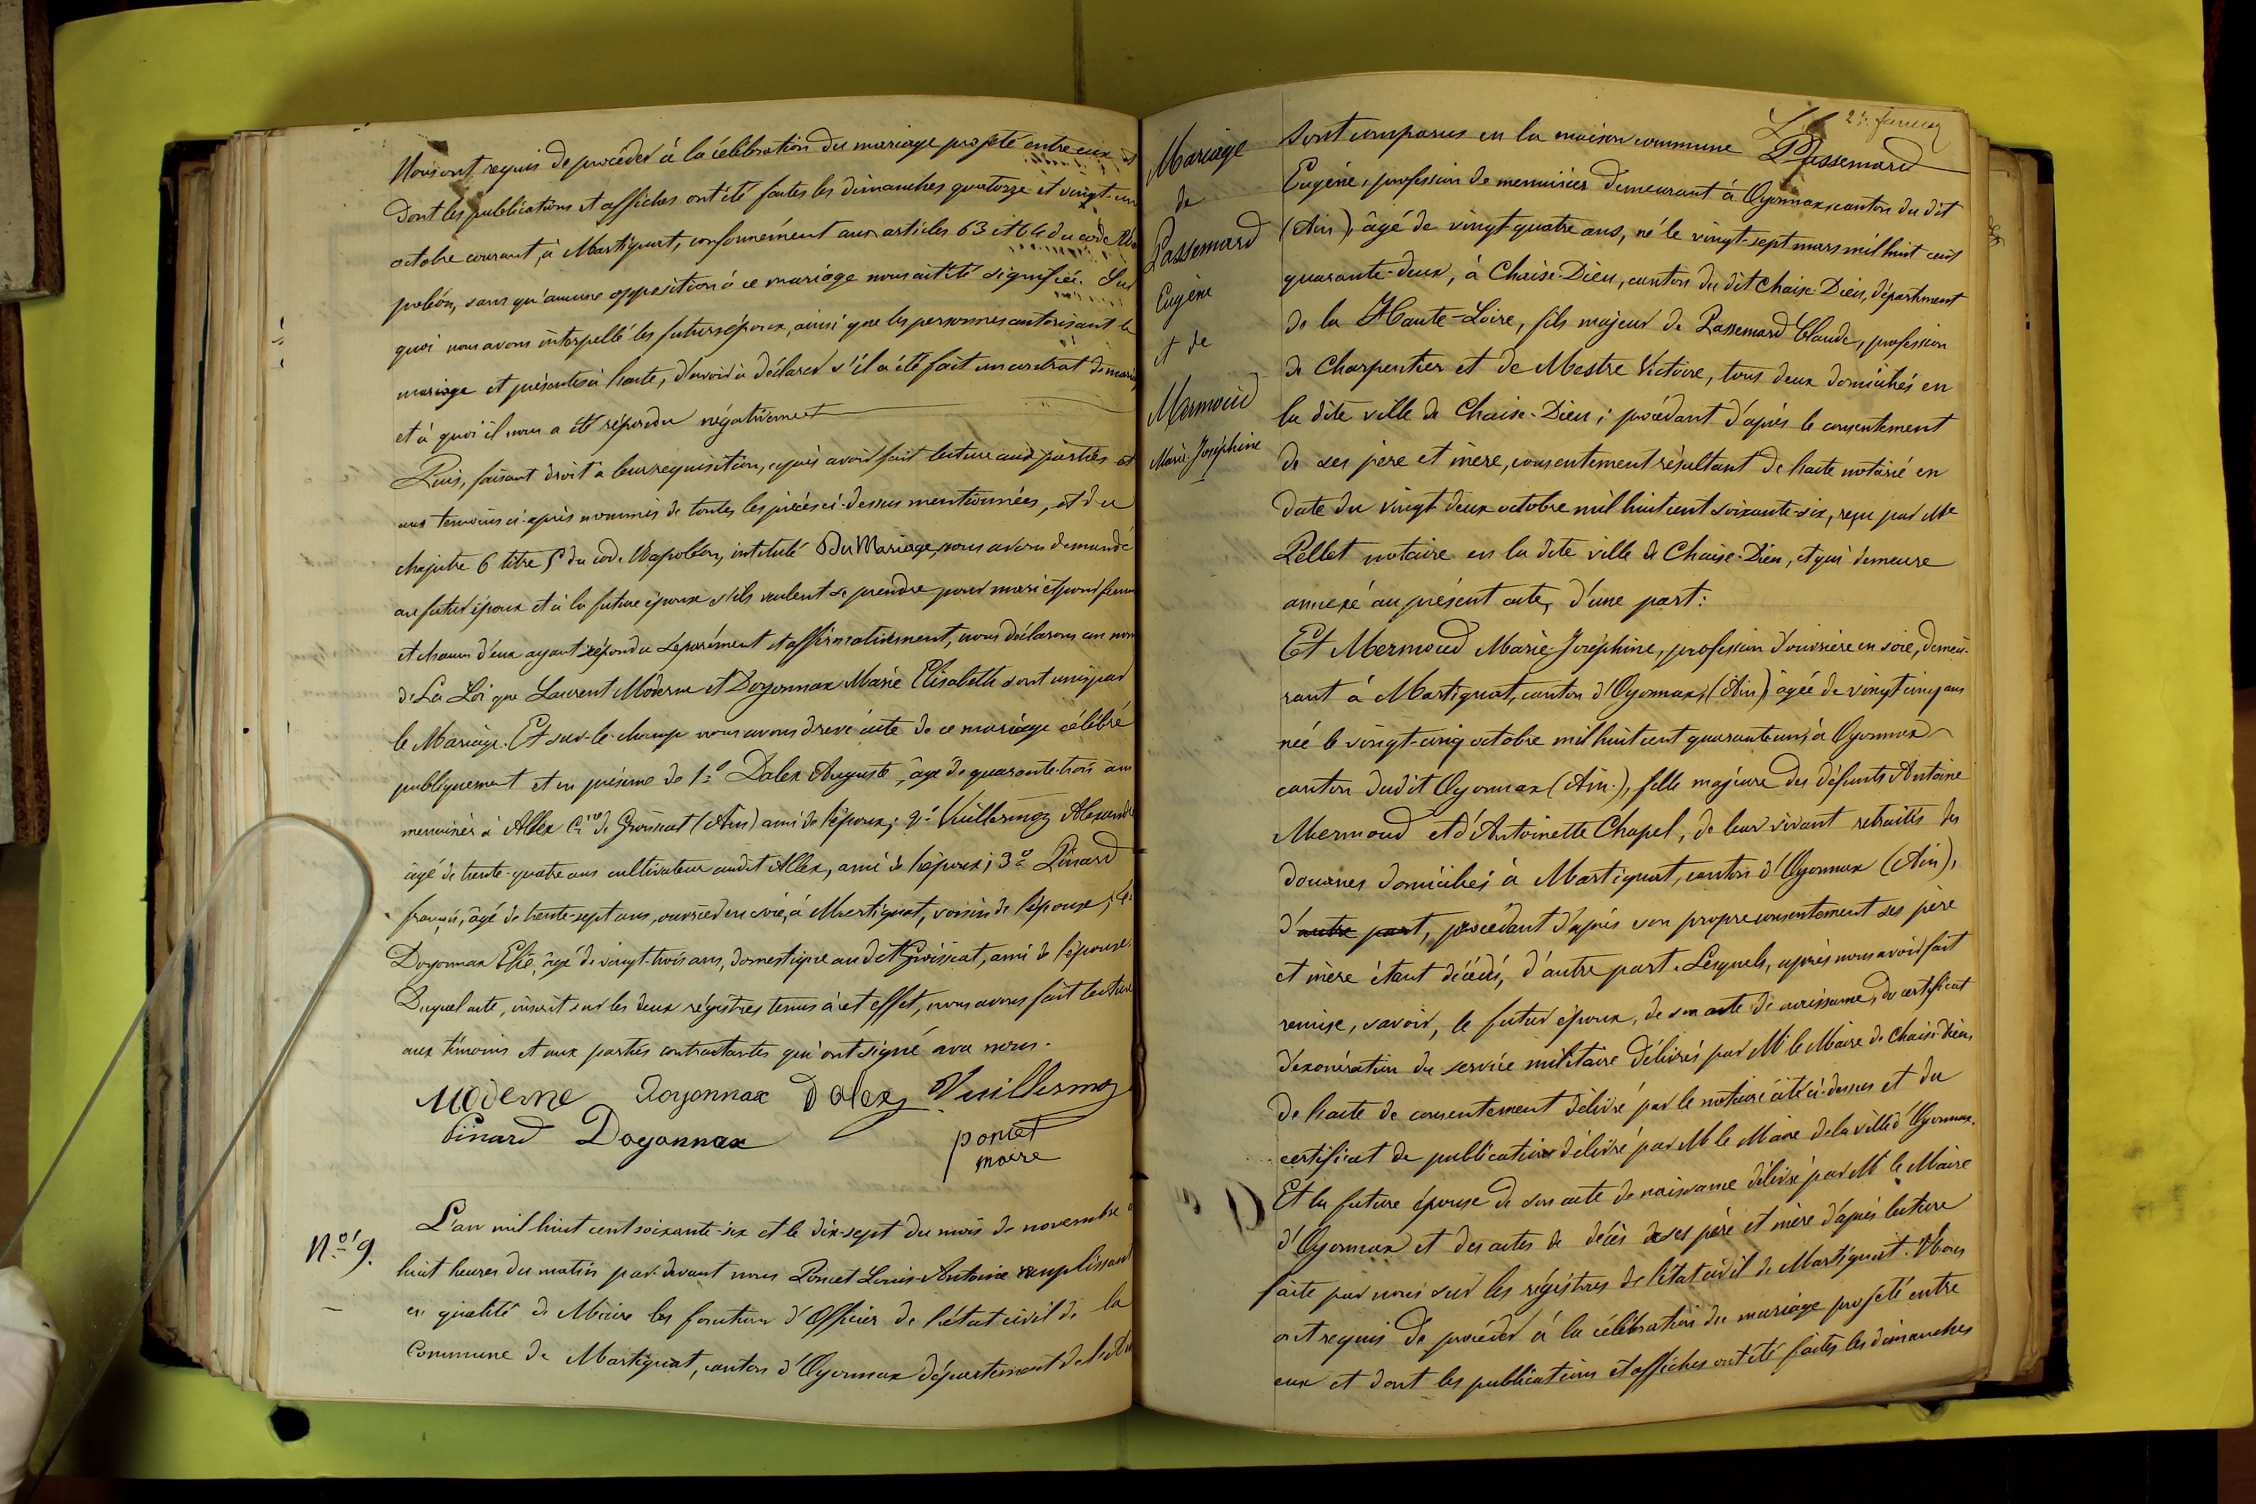 Nous ont requis de procéder à la célébration du mariage projeté entre eux et
dont les publications et affiches ont été faites les dimanches quatorze et vingt-un
octobre courant, à Martignat, conformément aux articles 63 et 64 du code Na
poléon, sans qu'aucune opposition à ce mariage nous ait été signifiée. Sur
quoi nous avons interpellé les futurs époux, ainsi que les personnes autorisant le
mariage et présentes à l'acte, d'avoir à déclarer s'il a été fait un contrat de mariage
et à quoi il nous a été répondu négativement
Puis, faisant droit à leur requisition, après avoir fait lecture aux parties et
aux témoins ci-après nommés de toutes les pièces ci-dessus mentionnées, et du
chapitre 6 titre 5 du code Napoléon, intitulé Du Mariage, nous avons demandé
au futur époux et à la future épouse s'ils veulent se prendre pour mari et pour femme
et chacun d'eux ayant répondu séparément et affirmativement, nous déclarons au nom
de La Loi que Laurent Moderne et Doyonnax Marie Elisabeth sont unis par
le Mariage. Et sur-le-champ nous avons dressé acte de ce mariage célébré
publiquement et en présence de 1o Dalex Auguste, âgé de quarante-trois ans
menuisier à Allex Cne de Groissiat (Ain) ami de l'époux; 2o Vuillermoz Alexandre
âgé de trente-quatre ans cultivateur audit Allex, ami de l'époux; 3o Pinard
françois, âgé de trente-sept ans, ouvrier en soie, à Martignat, voisin de l'épouse; 4o
Doyonnax Elie, âgé de vingt-trois ans, domestique au dit Groissiat, ami de l'épouse.
Duquel acte, inscrit sur les deux régistres tenus à cet effet, nous avons fait lecture
aux témoins et aux parties contractantes qui ont signé avec nous.
Moderne Doyonnax Dalex Vuillermoz
Pinard Doyonnax poncet
maire
No 9.
L'an mil huit cent soixante-six et le dix-sept du mois de novembre à
huit heures du matin par-devant nous Poncet Louis-Antoine remplissant
en qualité de Maire les fonctions d'Officier de l'état civil de la
Commune de Martignat, canton d'Oyonnax département de l'Ain
Mariage
de
Passemard
Eugène
et de
Mermoud
Marie Joséphine
sont comparus en la maison commune Passemard
Eugène, profession de menuisier demeurant à Oyonnax canton du dit
(Ain), âgé de vingt-quatre ans, né le vingt-sept mars mil huit cent
quarante-deux, à Chaise-Dieu, canton du dit Chaise-Dieu, département
de la Haute-Loire, fils majeur de Passemard Claude, profession
de Charpentier et de Mestre Victoire, tous deux domiciliés en
la dite ville de Chaise-Dieu; procédant d'après le consentement
de ses père et mère, consentement résultant de l'acte notarié en
date du vingt deux octobre mil huit cent soixante-six, reçu par Me
Pellet notaire en la dite ville de Chaise-Dieu, et qui demeure
annexé au présent acte, d'une part:
Et Mermoud Marie-Joséphine, profession d'ouvrière en soie, demeu-
rant à Martignat, canton d'Oyonnax, (Ain) âgée de vingt cinq ans
née le vingt-cinq octobre mil huit cent quarante un, à Oyonnax
canton dudit Oyonnax (Ain.), fille majeure des défunts Antoine
Mermoud et d'Antoinette Chapel, de leur vivant retraités des
douanes domiciliés à Martignat, canton d'Oyonnax (Ain),
d'autre part, procédant d'après son propre consentement ses père
et mère étant décédés, d'autre part. Lesquels, après nous avoir fait
remise, savoir, le futur époux, de son acte de naissance, du certificat
d'exonération du service militaire délivrés par Mr le Maire de Chaise-Dieu,
de l'acte de consentement délivré par le notaire cité ci-dessus et du
certificat de publication délivré par Mr le Maire de la ville d'Oyonnax.
Et la future épouse de son acte de naissance délivré par Mr le Maire
d'Oyonnax et des actes de décès de ses père et mère d'après lecture
faite par nous sur les régistres de l'état civil de Martignat. Nous
ont requis de procéder à la célébration du mariage projeté entre
eux et dont les publications et affiches ont été faites les dimanches